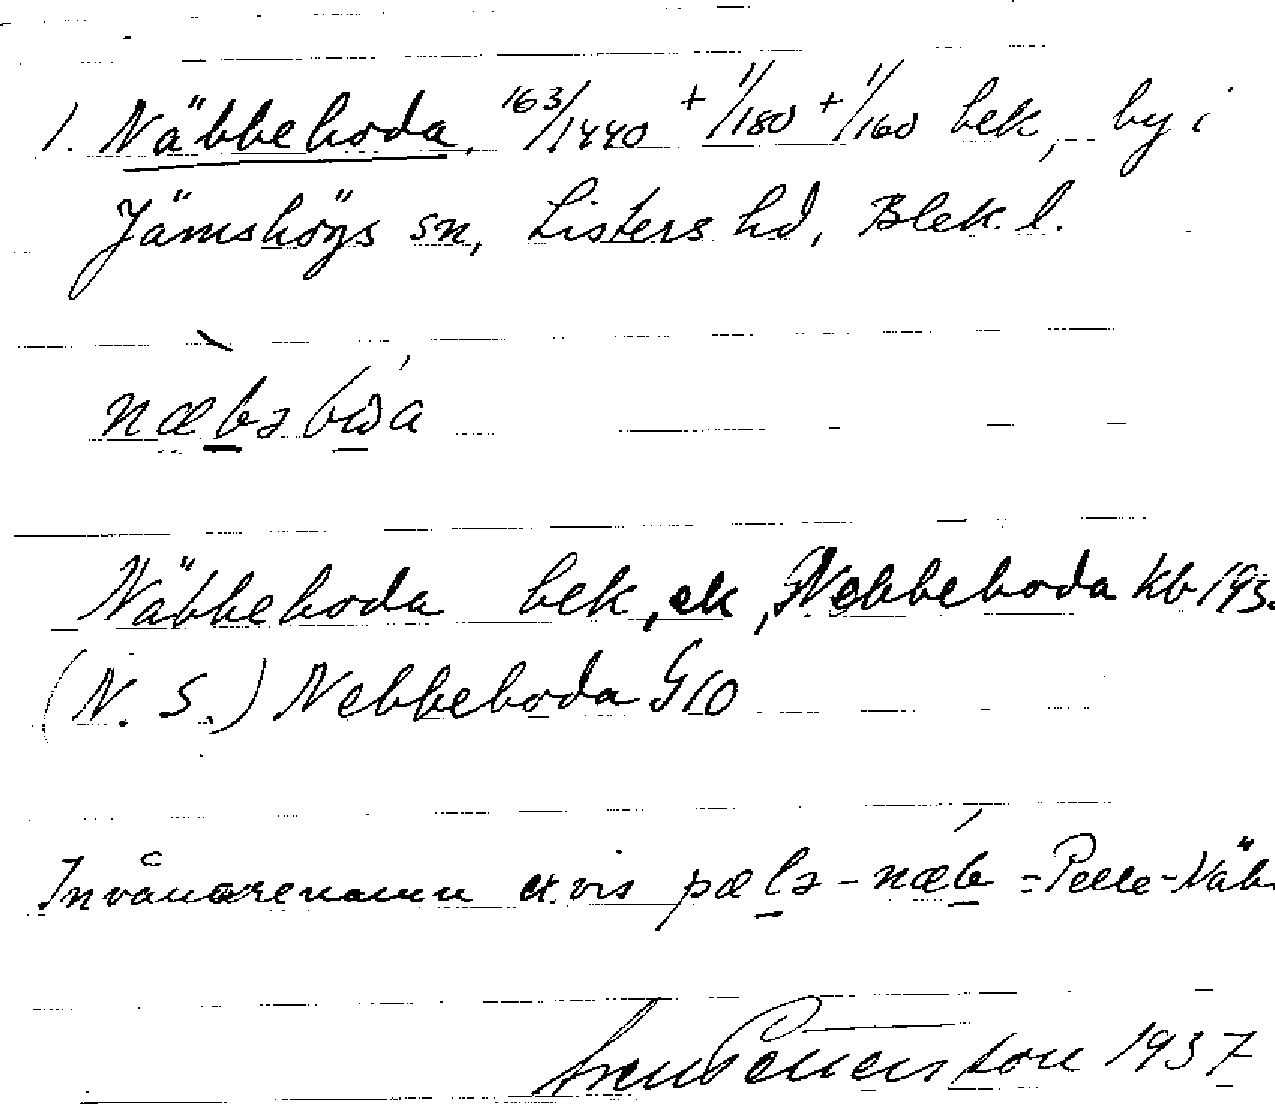 1. Näbbeboda, 163/1440 + 1/180 + 1/160 bek, by i
Jämshögs sn, Listers hd, Blek. l.
næbəbωa
Näbbeboda bek, ek, Nebbeboda kb 193
(N. S.) Nebbeboda G 10
Invånarenamn ex.vis pælə-næb = Pelle-Näb
Sven Benson 1937